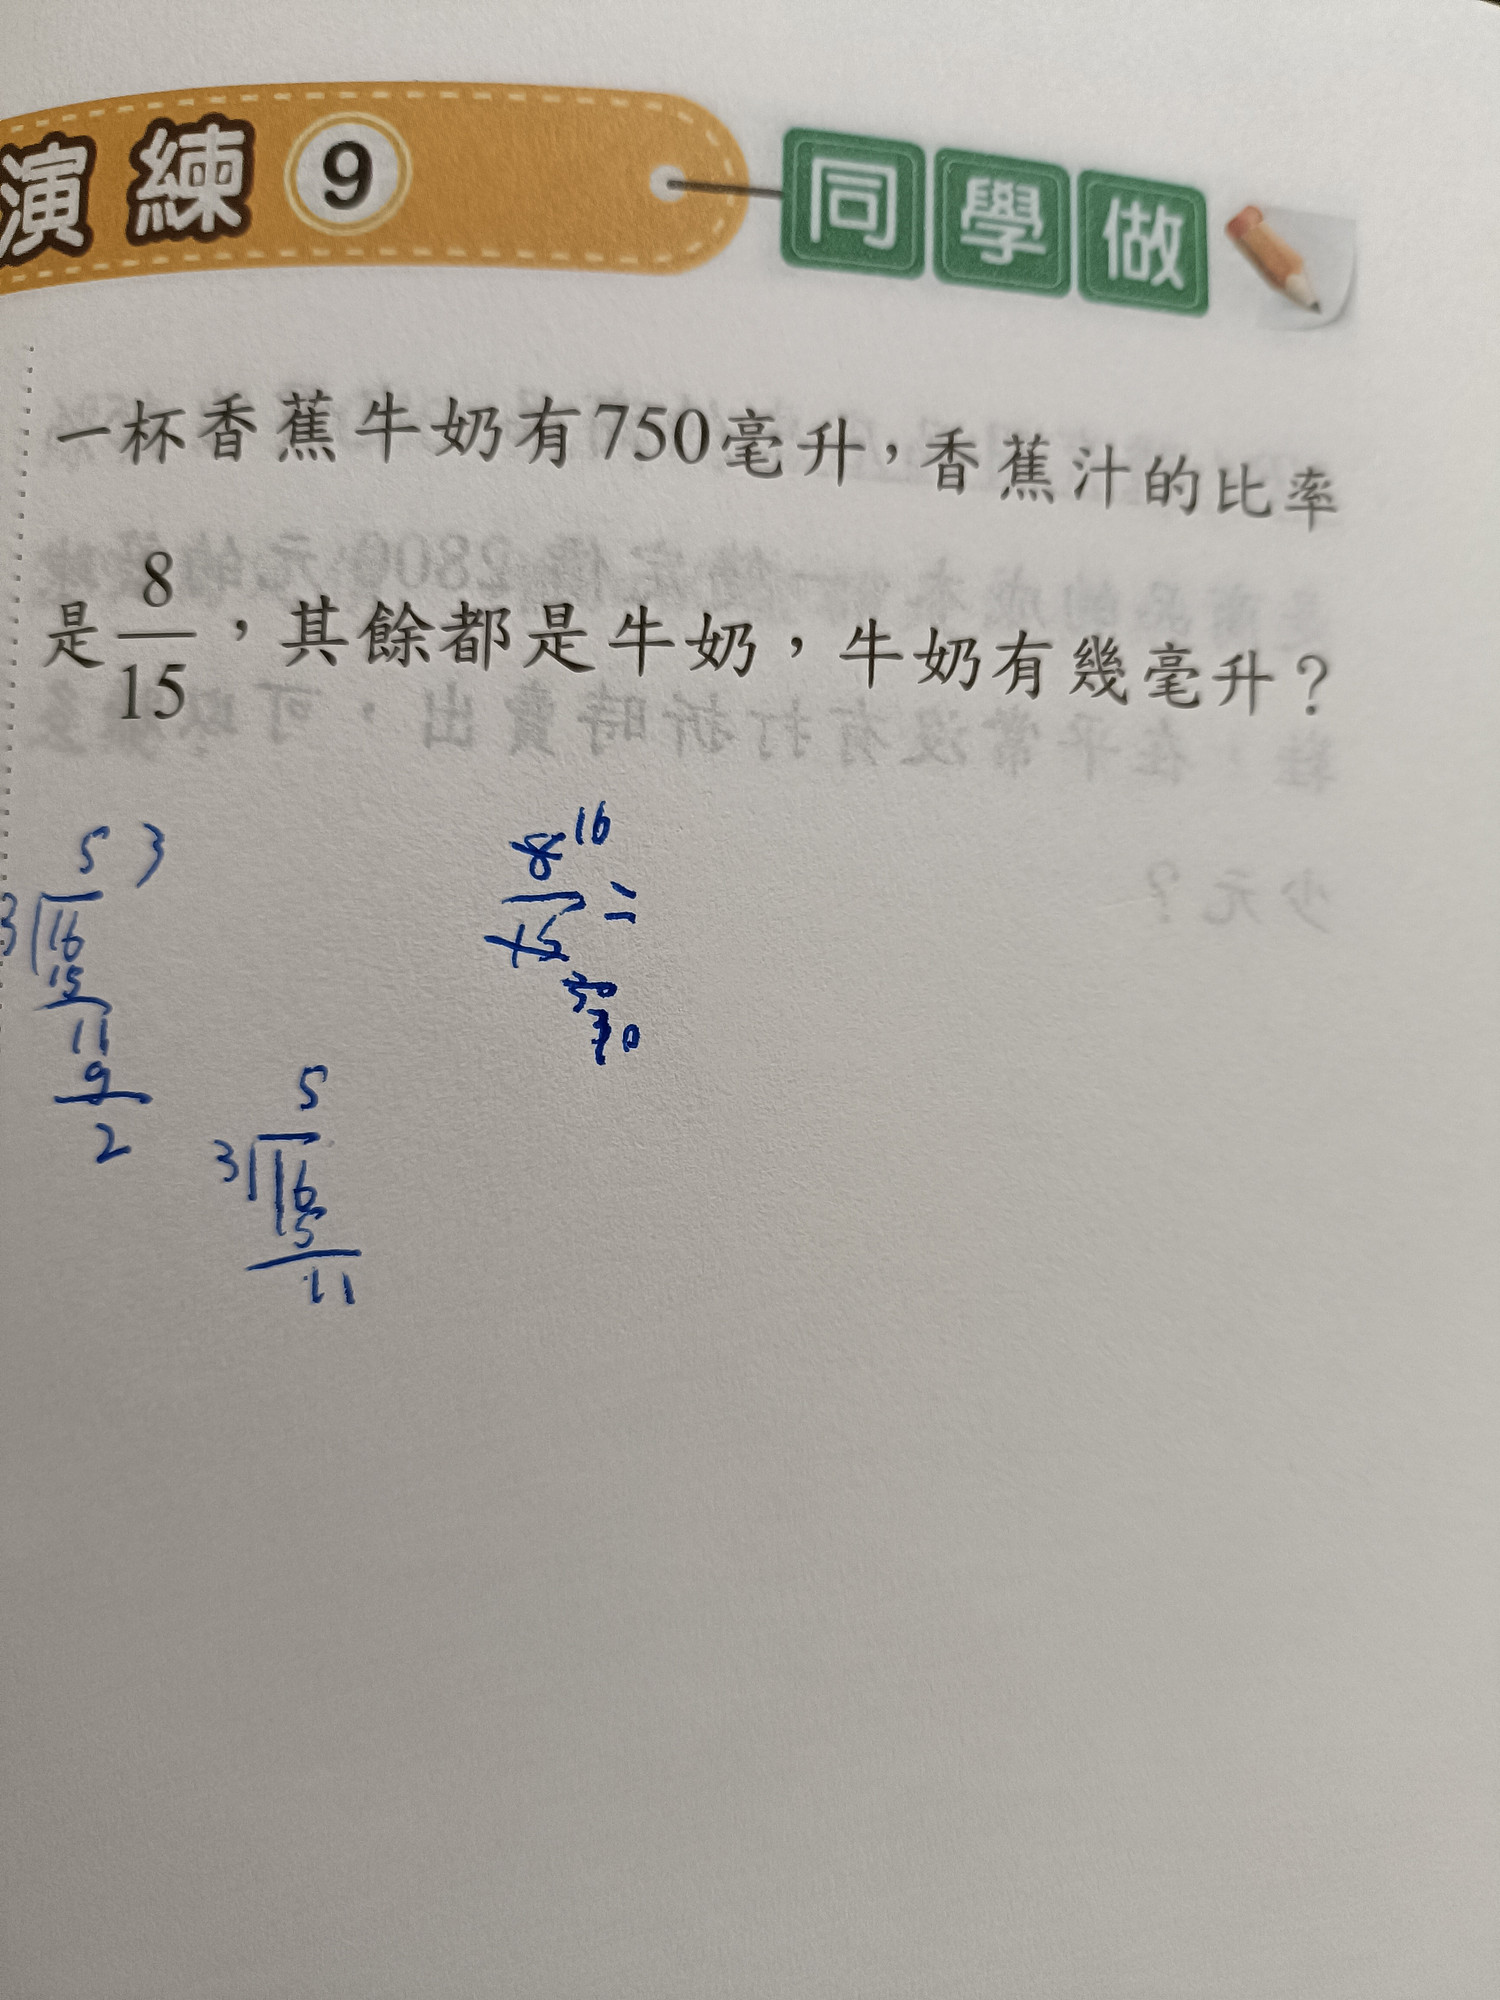 演練9
同學做
一杯香蕉牛奶有750毫升，香蕉汁的比率
是8/15，其餘都是牛奶，牛奶有幾毫升？
5 3
3 16
15
11
9
2
8 16
15 =
30
5
3 16
5
11
少元？